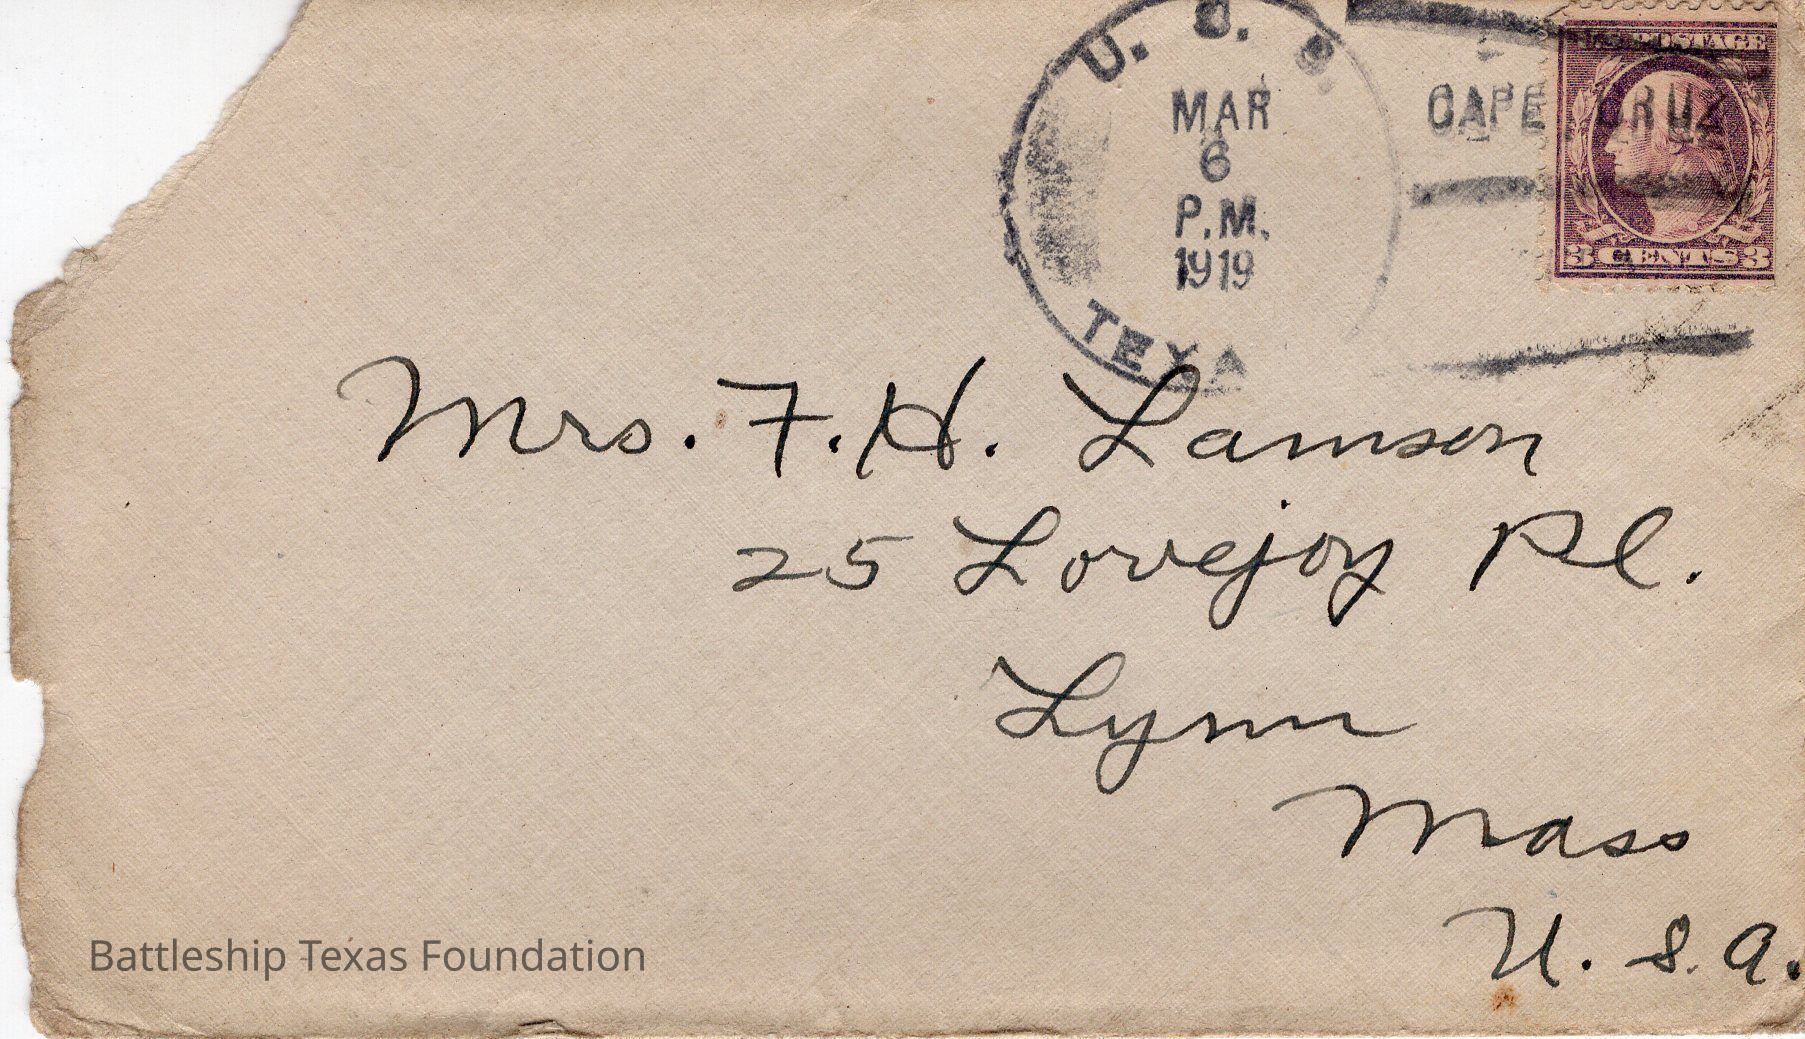 U. S. S.
MAR
6
P.M.
1919
TEXA
CAPE CRUZ
U.S. POSTAGE
3 CENTS 3
Mrs. F. H. Lamson
25 Lovejoy Pl.
Lynn
Mass
U. S. A.
Battleship Texas Foundation